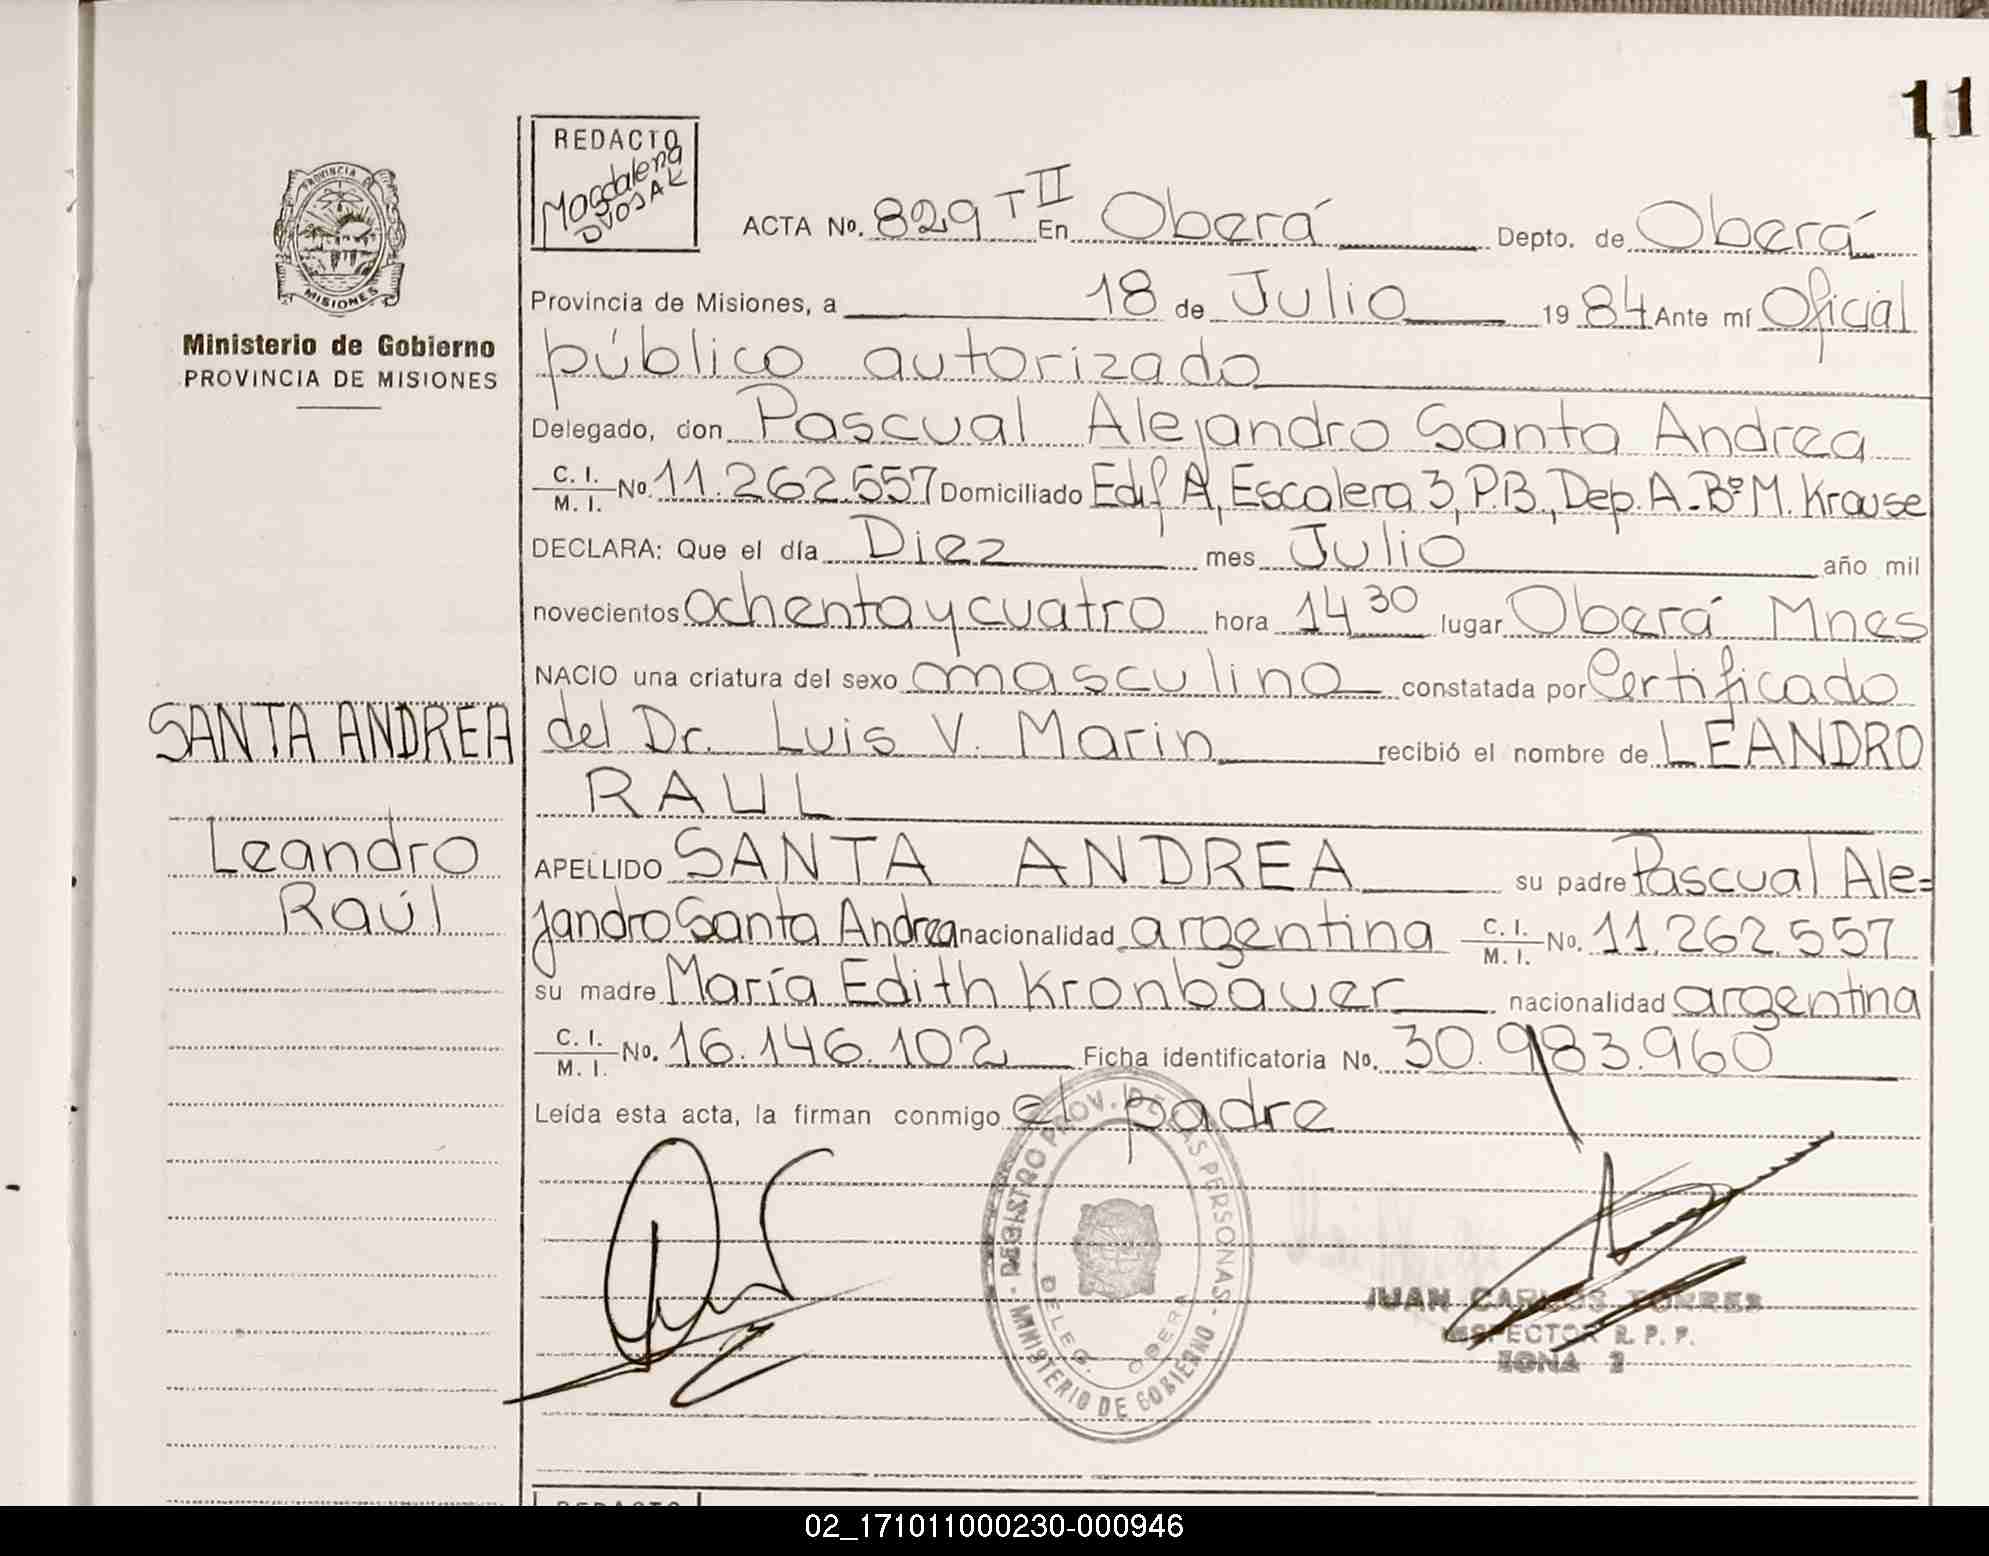 11
REDACTO
Magdalena
DVOSAK
PROVINCIA DE
MISIONES
Ministerio de Gobierno
PROVINCIA DE MISIONES
ACTA No. 829 T II En Oberá Depto. de Oberá
Provincia de Misiones, a 18 de Julio 1984 Ante mí Oficial
público autorizado
Delegado, don Pascual Alejandro Santa Andrea
C. I. / M. I. No. 11.262.557 Domiciliado Edif A, Escalera 3, P.B., Dep. A. Bº M. Krause
DECLARA: Que el día Diez mes Julio año mil
novecientos ochenta y cuatro hora 14 30 lugar Oberá Mnes
NACIO una criatura del sexo masculino constatada por Certificado
SANTA ANDREA
del Dr. Luis V. Marin recibió el nombre de LEANDRO
RAUL
Leandro
Raúl
APELLIDO SANTA ANDREA su padre Pascual Ale=
jandro Santa Andrea nacionalidad argentina C. I. / M. I. No. 11.262.557
su madre María Edith Kronbauer nacionalidad argentina
C. I. / M. I. No. 16.146.102 Ficha identificatoria No. 30.983.960
Leída esta acta, la firman conmigo el padre
REGISTRO PROV. DE LAS PERSONAS - MINISTERIO DE GOBIERNO -
DELEG. OBERA
JUAN CARLOS TORRES
INSPECTOR R. P. P.
ZONA 2
REDACTO
02_171011000230-000946